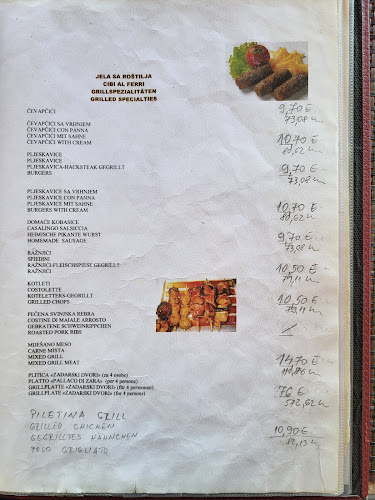 JELA SA ROŠTILJA
CIBI AL FERRI
GRILLSPEZIALITÄTEN
GRILLED SPECIALTIES
ČEVAPČIĆI 9,70 €
73,08 kn
ČEVAPČIĆI SA VRHNJEM
ČEVAPČIĆI CON PANNA
ČEVAPČIĆI MIT SAHNE 10,70 €
ČEVAPČIĆI WITH CREAM 80,62 kn
PLJESKAVICE
PLJESKAVICE
PLJESKAVICA-HACKSTEAK GEGRILLT 9,70 €
BURGERS 73,08 kn
PLJESKAVICE SA VRHNJEM
PLJESKAVICE CON PANNA
PLJESKAVICE MIT SAHNE 10,70 €
BURGERS WITH CREAM 80,62 kn
DOMAĆE KOBASICE
CASALINGO SALSICCIA
HEIMISCHE PIKANTE WURST 9,70 €
HOMEMADE SAUSAGE 73,08 kn
RAŽNJIĆI
SPIEDINI
RAŽNJIĆI-FLEISCHSPIEST GEGRILLT 10,50 €
RAŽNJIĆI 79,11 kn
KOTLETI
COSTOLETTE
KOTELETTERS-GEGRILLT 10,50 €
GRILLED CHOPS 79,11 kn
PEČENA SVINJSKA REBRA
COSTINE DI MAIALE ARROSTO
GEBRATENE SCHWEINRIPPCHEN
ROASTED PORK RIBS
MIJEŠANO MESO
CARNE MISTA
MIXED GRILL 14,70 €
MIXED GRILL MEAT
PLITICA «ZADARSKI DVORI» (za 4 osobe)
PLATTO «PALLACO DI ZARA» (per 4 persone)
GRILLPLATTE «ZADARSKI DVORI» (für 4 personnen) 76 €
GRILLPLATE «ZADARSKI DVORI» (for 4 persons) 572,62 kn
PILETINA GRILL
GRILLED CHICKEN
GEGRILLTES HÄHNCHEN 10,90 €
POLO GRIGLIATO 82,13 kn